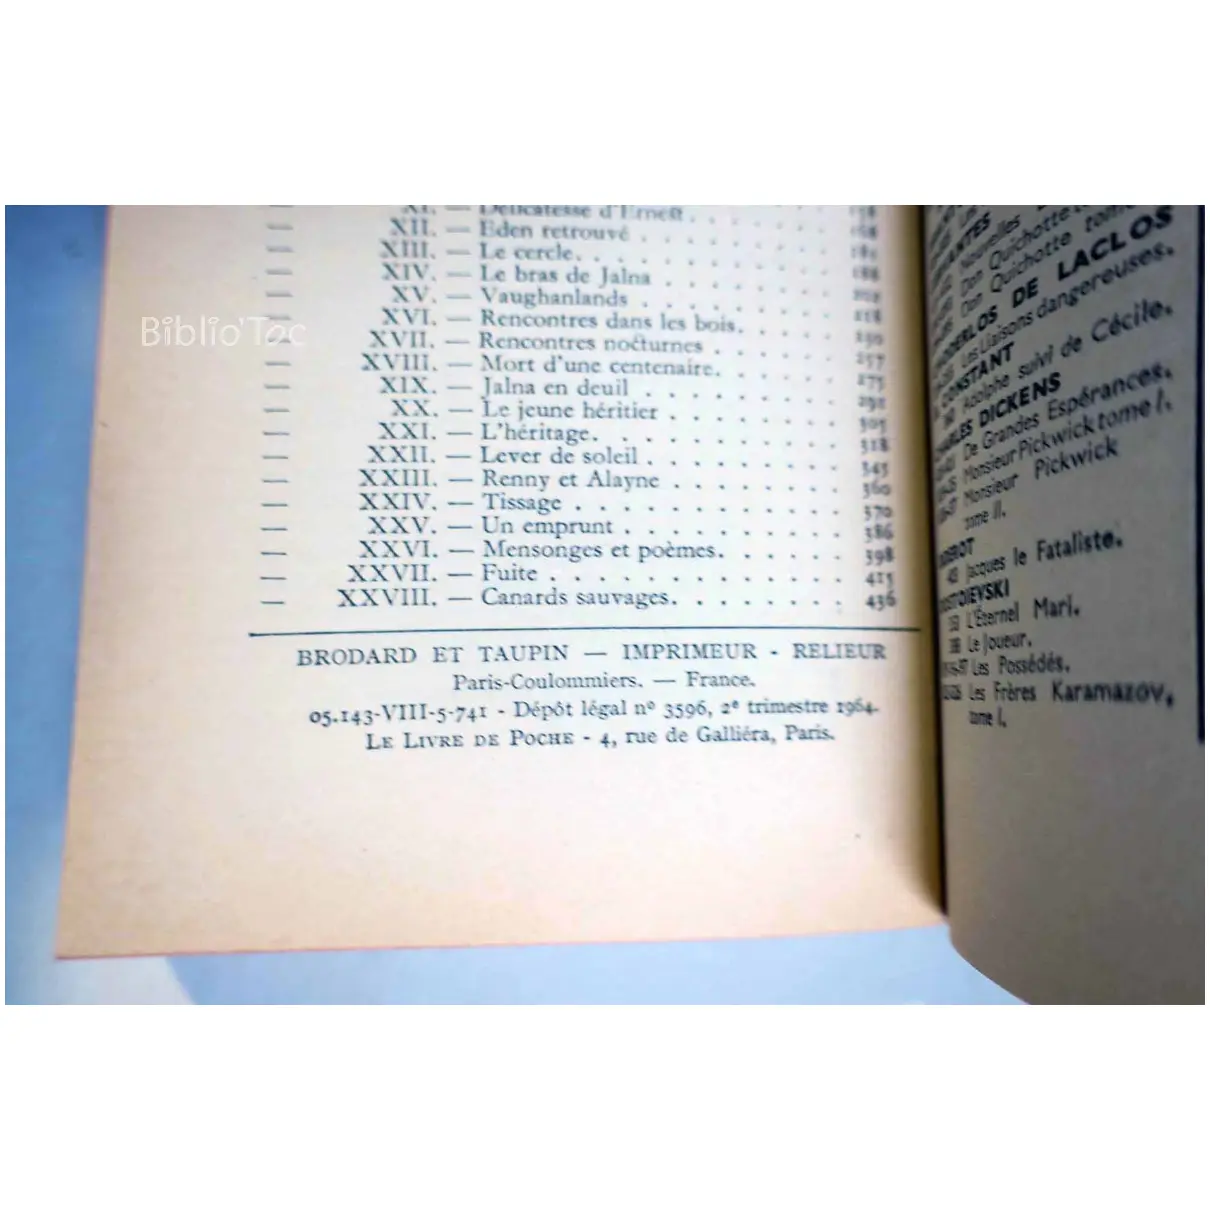 XI. — Délicatesse d'Ernest.
XII. — Eden retrouvé
XIII. — Le cercle.
— XIV. — Le bras de Jalna
— XV. — Vaughanlands
— XVI. — Rencontres dans les bois.
— XVII. — Rencontres nocturnes
— XVIII. — Mort d'une centenaire. 257
— XIX. — Jalna en deuil 275
— XX. — Le jeune héritier
— XXI. — L'héritage.
— XXII. — Lever de soleil 318
— XXIII. — Renny et Alayne 343
— XXIV. — Tissage 360
— XXV. — Un emprunt 386
— XXVI. — Mensonges et poèmes. 398
— XXVII. — Fuite 413
— XXVIII. — Canards sauvages. 436
BRODARD ET TAUPIN — IMPRIMEUR - RELIEUR
Paris-Coulommiers. — France.
05.143-VIII-5-741 - Dépôt légal nº 3596, 2e trimestre 1964.
LE LIVRE DE POCHE - 4, rue de Galliéra, Paris.
Biblio'Toc
Nouvelles
Don Quichotte
Don Quichotte tome
DE LACLOS
Les Liaisons dangereuses.
CONSTANT
Adolphe suivi de Cécile.
DICKENS
De Grandes Espérances.
Monsieur Pickwick tome I.
Monsieur Pickwick
tome II.
Jacques le Fataliste.
L'Éternel Mari.
Le Joueur.
Les Possédés.
Les Frères Karamazov,
tome I.